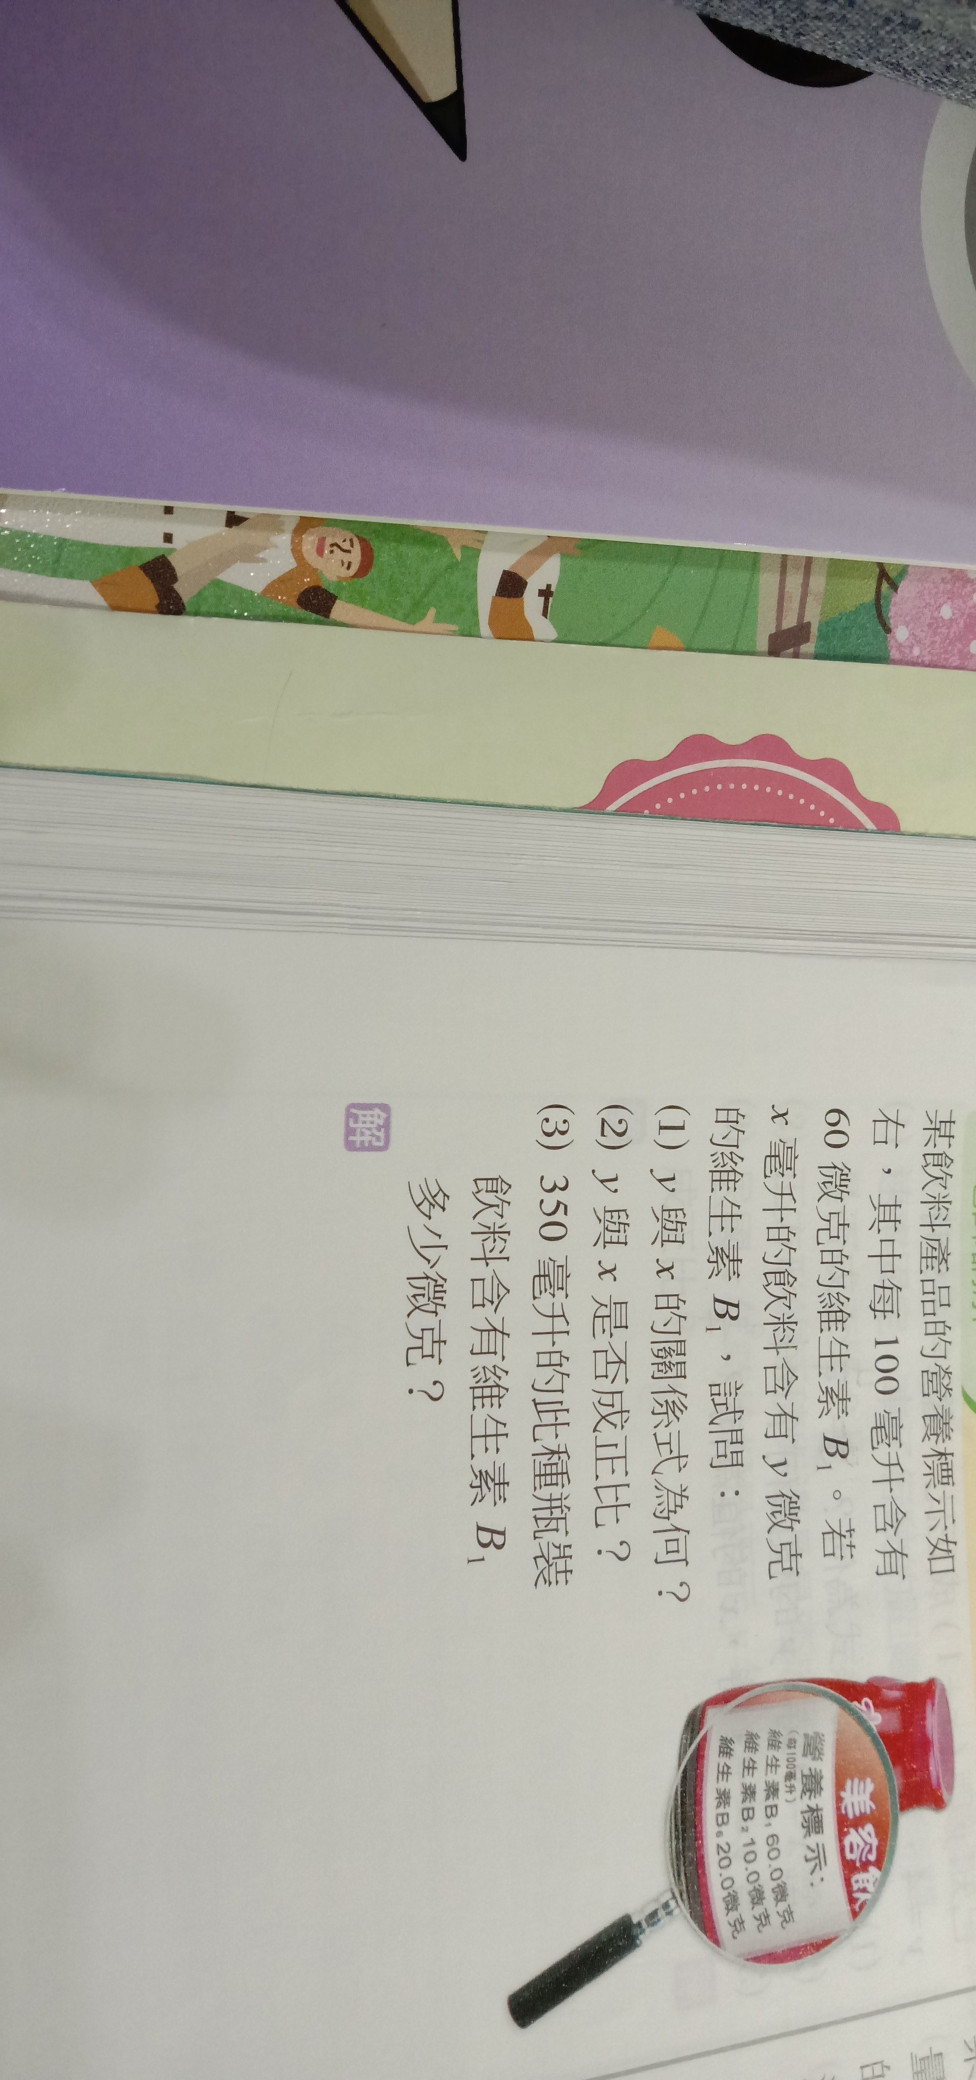 某飲料產品的營養標示如
右，其中每 100 毫升含有
60 微克的維生素 B₁。若
x 毫升的飲料含有 y 微克
的維生素 B₁，試問：
(1) y 與 x 的關係式為何？
(2) y 與 x 是否成正比？
(3) 350 毫升的此種瓶裝
飲料含有維生素 B₁
多少微克？
解
美容飲
營養標示：
(每100毫升)
維生素B₁ 60.0微克
維生素B₂ 10.0微克
維生素B₆ 20.0微克
量
的